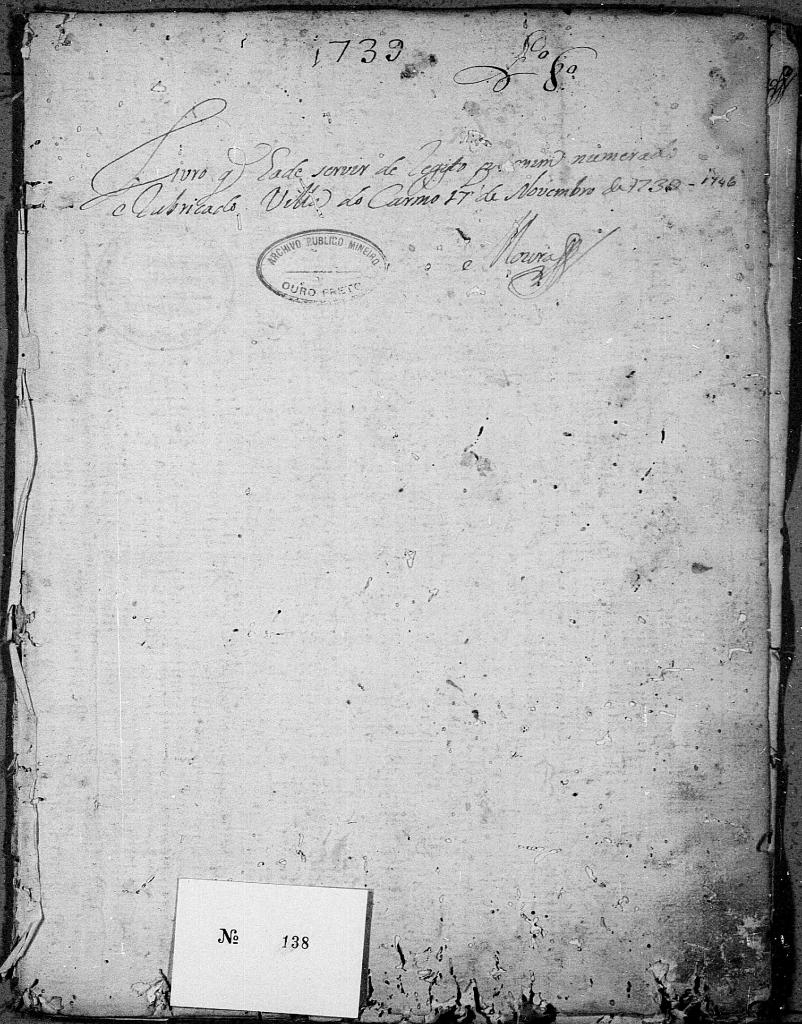 1739
Livro q̃ hade servir de Regito por mim numerado
e Rubricado Villa do Carmo 17 de Novembro de 1739 - 1746
Moura
ARCHIVO PUBLICO MINEIRO
OURO PRETO
№ 138